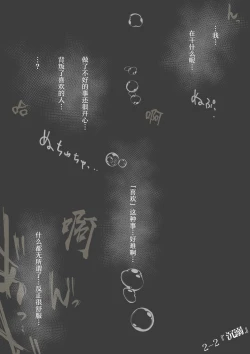 …我…
在干什么呢…
做了不好的事还很开心…
背叛了喜欢的人…
…?
哈
啊
ぬちゅちゅ…
「喜欢」这种事…好难啊…
啊
什么都无所谓了…反正很舒服…
2-2『沉溺』